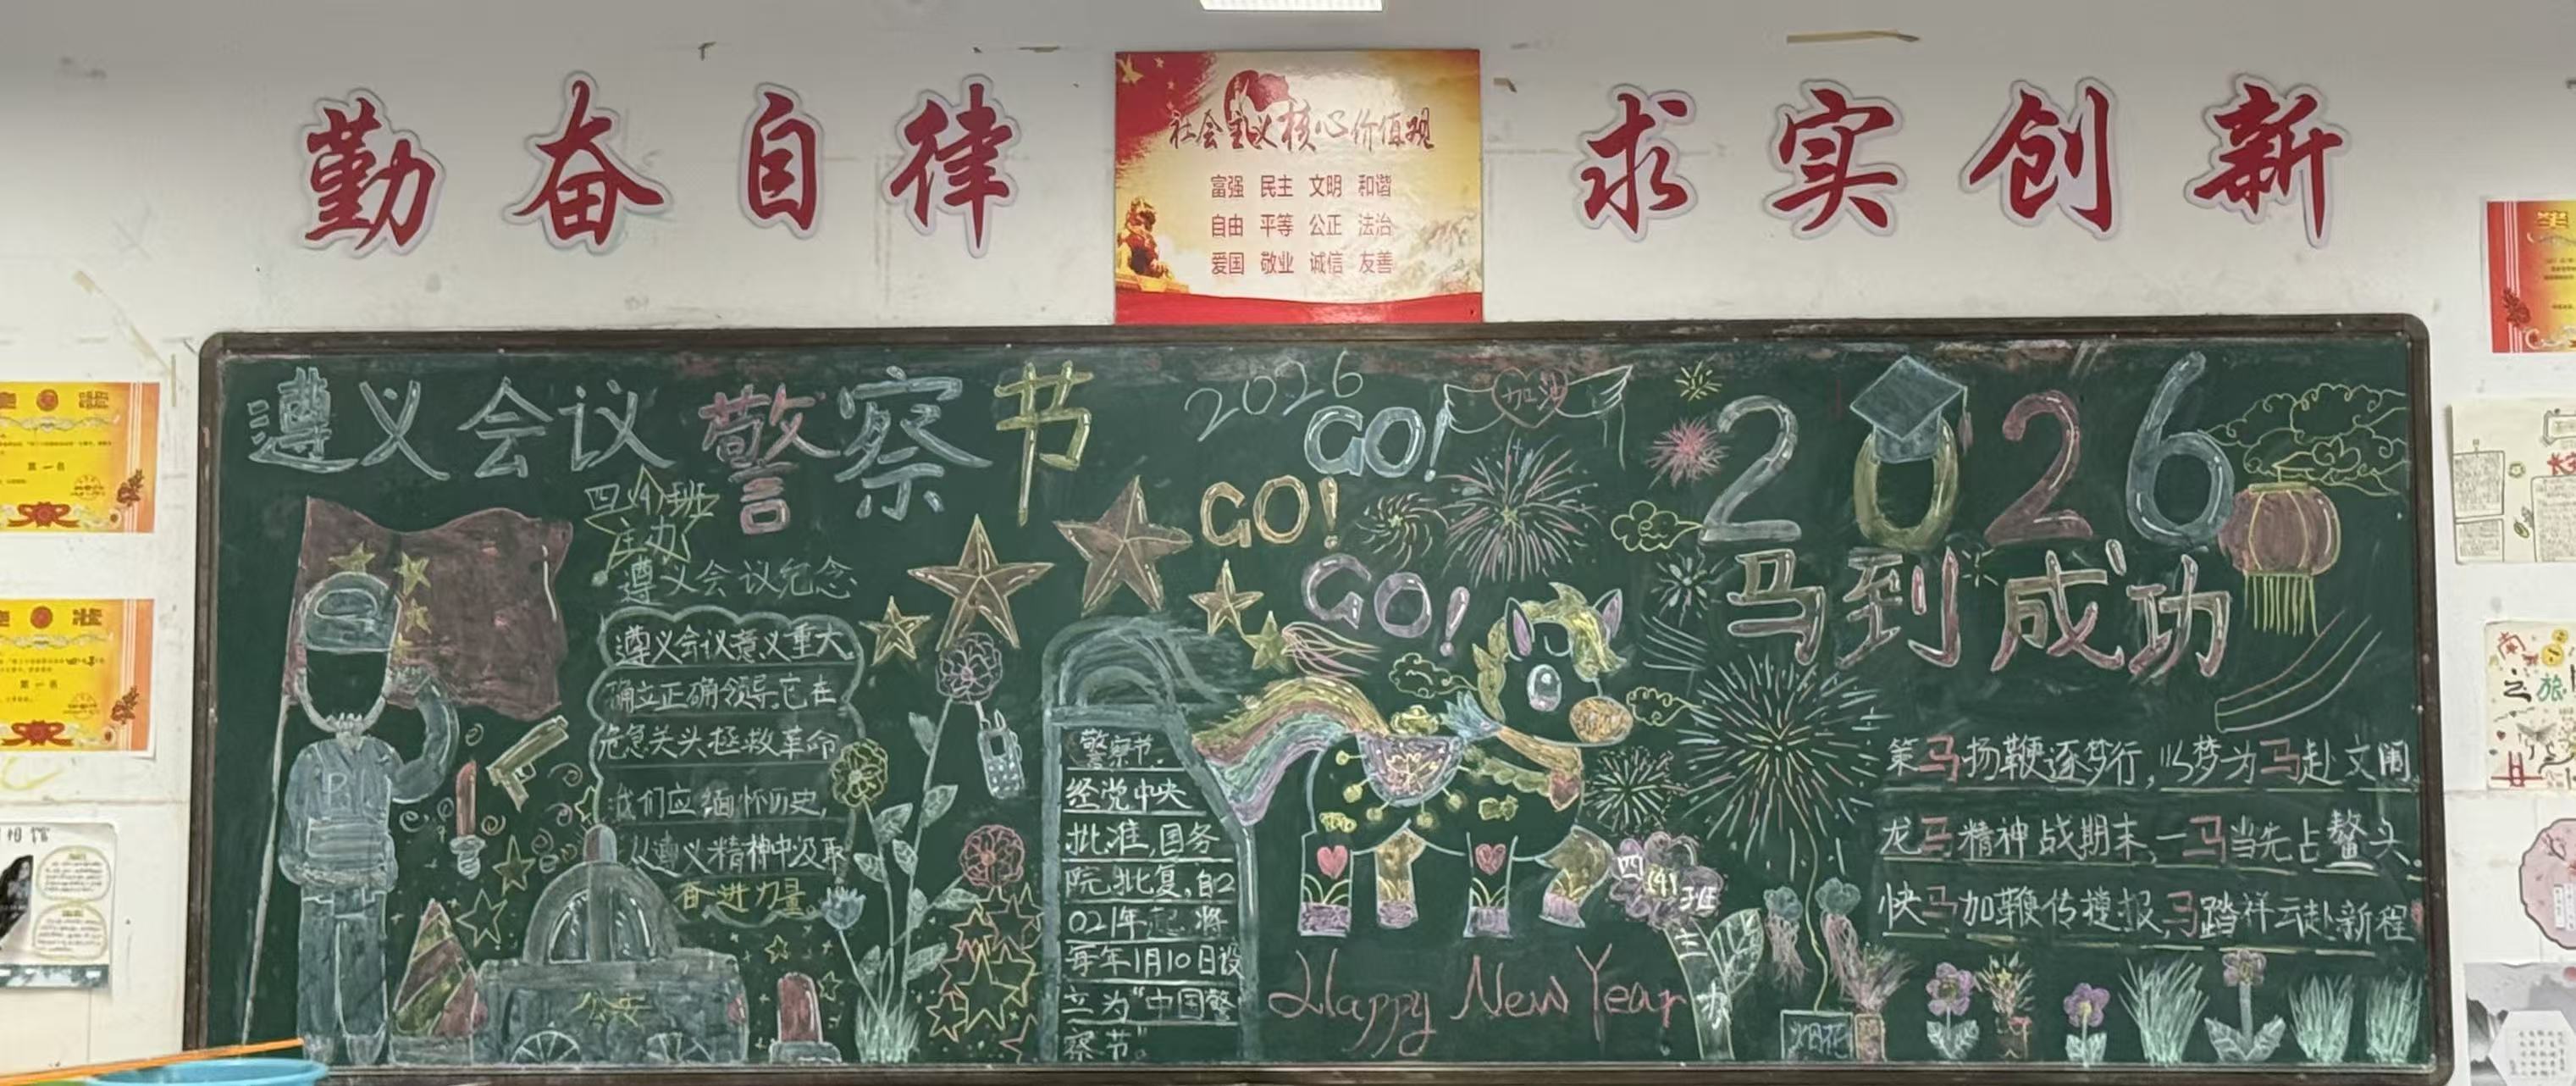 勤奋自律
社会主义核心价值观
富强 民主 文明 和谐
自由 平等 公正 法治
爱国 敬业 诚信 友善
求实创新
遵义会议 警察节
四(4)班
主办
遵义会议纪念
遵义会议意义重大
确立正确领导,它在
危急关头拯救革命
我们应缅怀历史,
从遵义精神中汲取
奋进力量
公安
警察节.
经党中央
批准,国务
院批复,自2
021年起将
每年1月10日设
立为“中国警
察节”
2026
GO!
GO!
GO!
加油
2026
马到成功
策马扬鞭逐梦行,以梦为马赴文闱
龙马精神战期末,一马当先占鳌头.
快马加鞭传捷报,马踏祥云赴新程
四(4)班
主办
Happy New Year
烟花
第一名
奖状
第一名